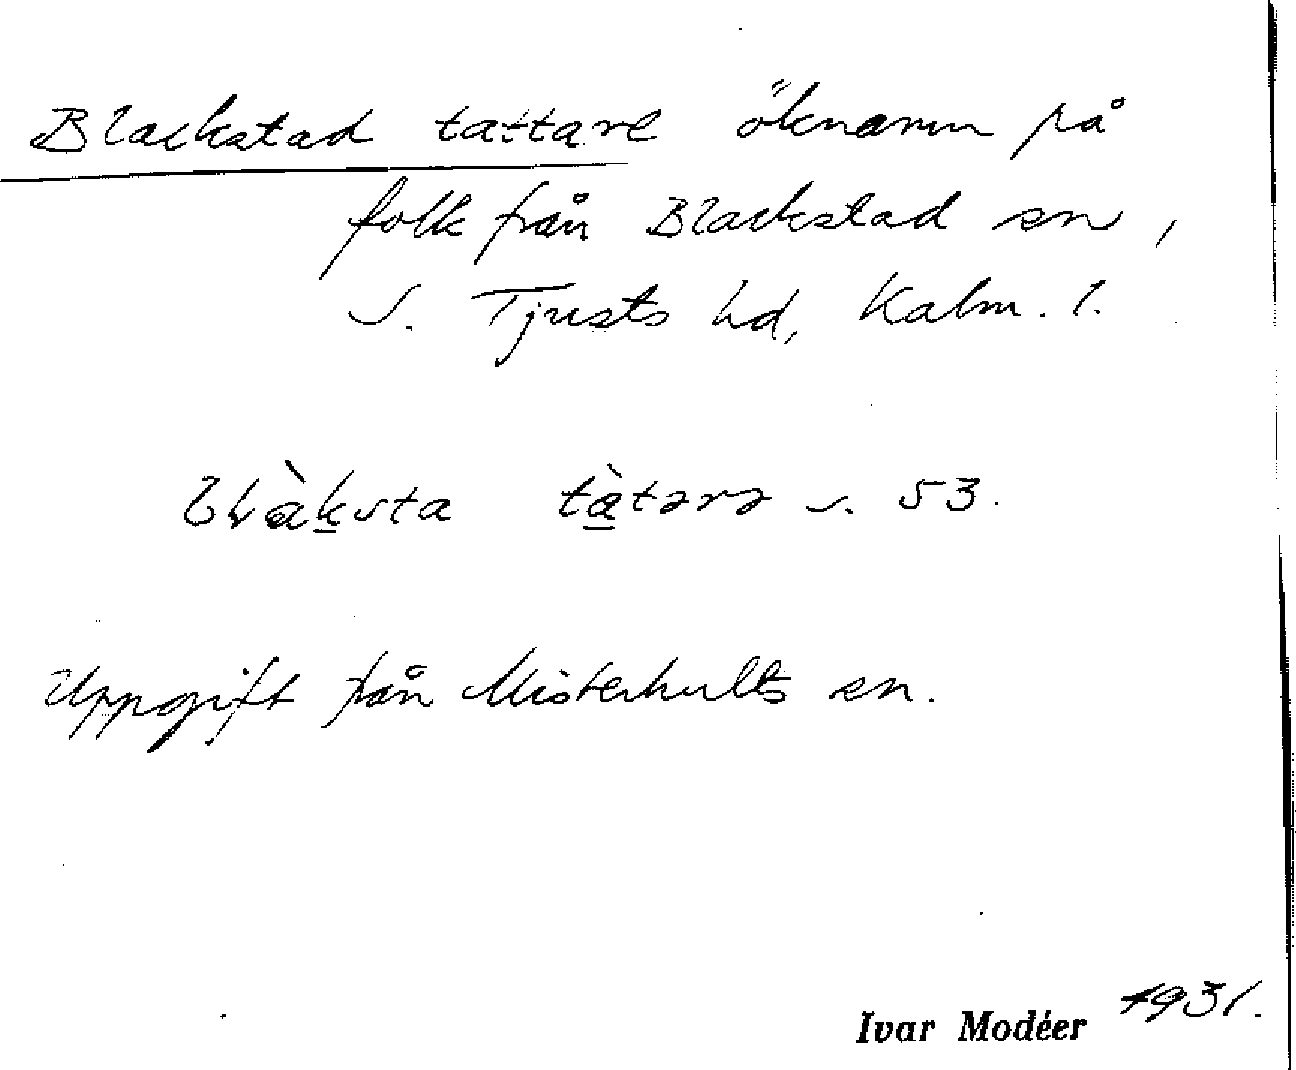 Blackstad tattare öknamn på
folk från Blackstad sn,
S. Tjusts hd, Kalm. l.
tàtərə s. 53.
Uppgift från Misterhults sn.
Ivar Modéer 1931.